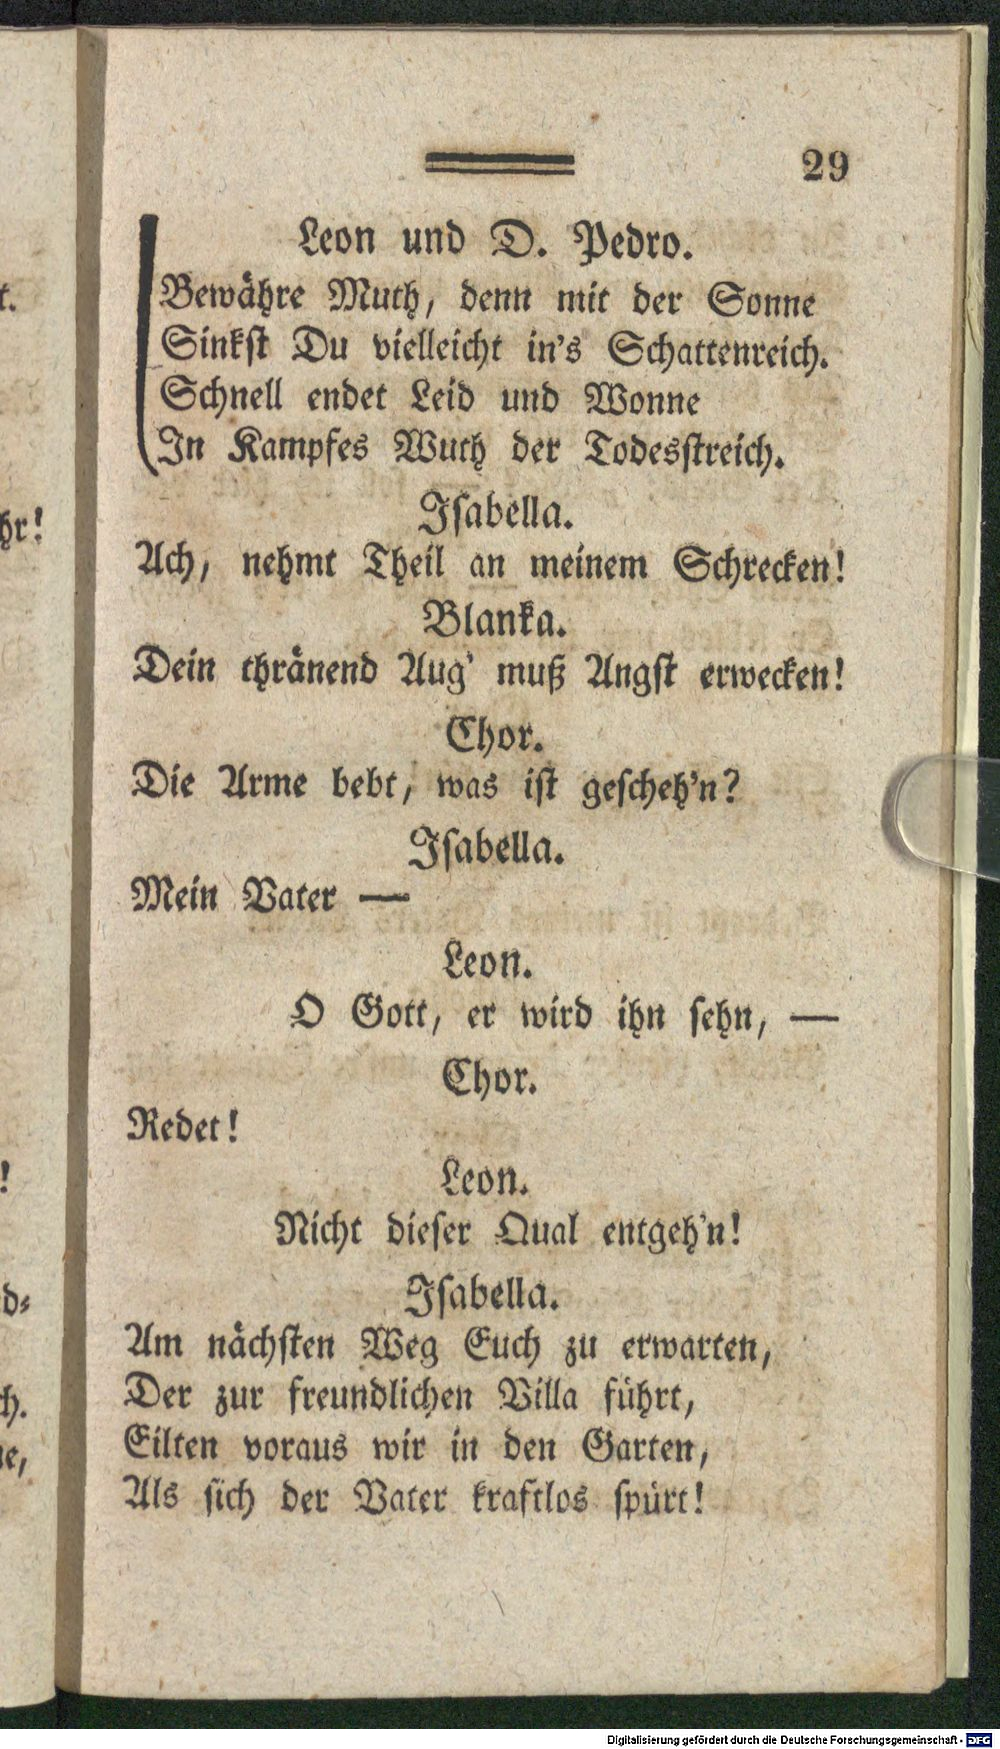 29
Leon und D. Pedro.
Bewähre Muth, denn mit der Sonne
Sinkst Du vielleicht in's Schattenreich.
Schnell endet Leid und Wonne
In Kampfes Wuth der Todesstreich.
Isabella.
Ach, nehmt Theil an meinem Schrecken!
Blanka.
Dein thränend Aug' muß Angst erwecken!
Chor.
Die Arme bebt, was ist gescheh'n?
Isabella.
Mein Vater —
Leon.
O Gott, er wird ihn sehn, —
Chor.
Redet!
Leon.
Nicht dieser Qual entgeh'n!
Isabella.
Am nächsten Weg Euch zu erwarten,
Der zur freundlichen Villa führt,
Eilten voraus wir in den Garten,
Als sich der Vater kraftlos spürt!
Digitalisierung gefördert durch die Deutsche Forschungsgemeinschaft - DFG